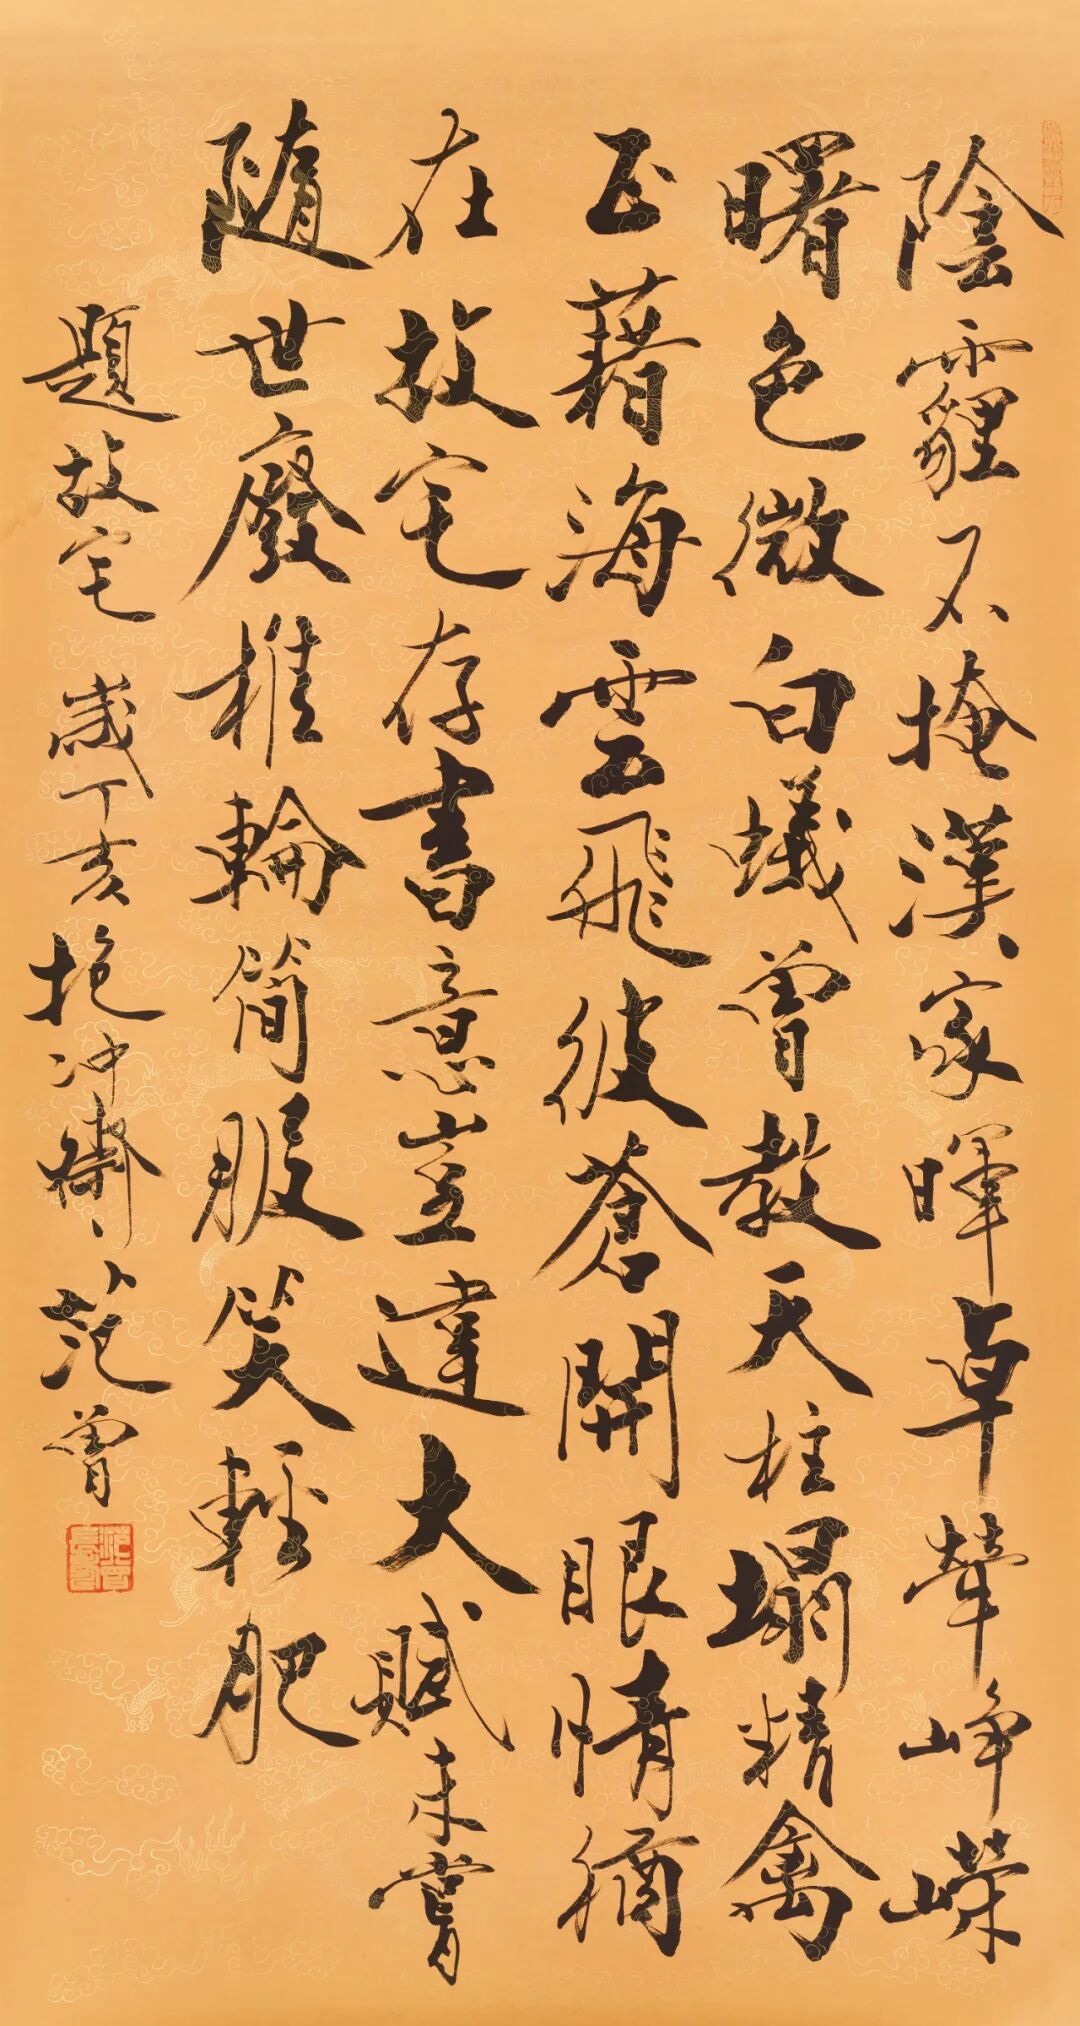 陰霾不掩漢家暉卓犖崢嶸
曙色微白蟻曾教天柱塌精禽
正藉海雲飛彼蒼開眼情猶
在故宅存書意豈違大賦未嘗
隨世廢椎輪簡服笑輕肥
題故宅 歲丁亥抱冲齋 范曾